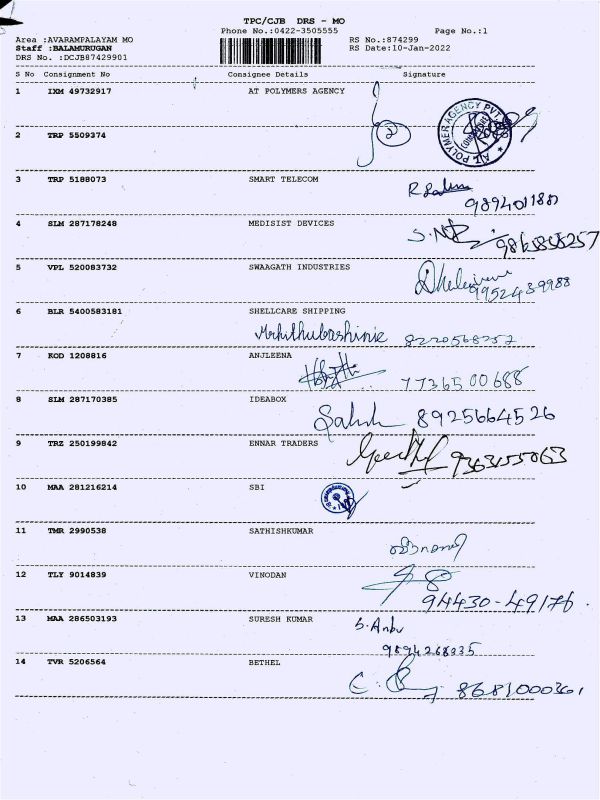 TPC/CJB DRS - MO
Phone No.:0422-3505555 Page No.:1
Area :AVARAMPALAYAM MO RS No.:874299
Staff :BALAMURUGAN RS Date:10-Jan-2022
DRS No. :DCJB87429901
S No Consignment No Consignee Details Signature
1 IXM 49732917 AT POLYMERS AGENCY
2
2 TRP 5509374
3 TRP 5188073 SMART TELECOM
4 SLM 287178248 MEDISIST DEVICES
5 VPL 520083732 SWAAGATH INDUSTRIES
9952439988
6 BLR 5400583181 SHELLCARE SHIPPING
7 KOD 1208816 ANJLEENA
7736500688
8 SLM 287170385 IDEABOX
8925664526
9 TRZ 250199842 ENNAR TRADERS
9363155063
10 MAA 281216214 SBI
11 TMR 2990538 SATHISHKUMAR
12 TLY 9014839 VINODAN
94430-49176
13 MAA 286503193 SURESH KUMAR
S. Anbu
9894268335
14 TVR 5206564 BETHEL
8681000361